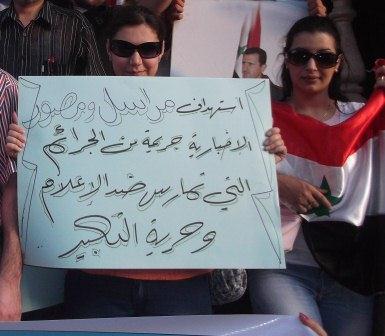 استهداف مراسل ومصور
الاخبارية جريمة من الجرائم
التي تمارس ضد الإعلام
وحرية التعبير